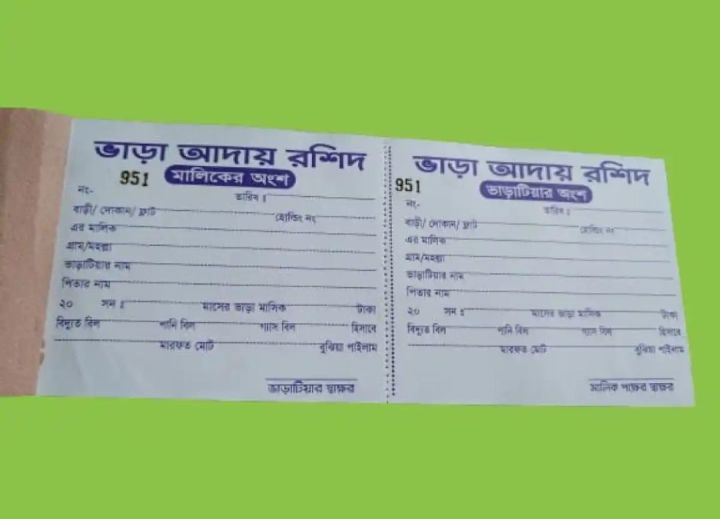 ভাড়া আদায় রশিদ
951 মালিকের অংশ
নং- তারিখ ঃ
বাড়ী/ দোকান/ ফ্লাট হোল্ডিং নং
এর মালিক
গ্রাম/মহল্লা
ভাড়াটিয়ার নাম
পিতার নাম
২০ সন ঃ মাসের ভাড়া মাসিক টাকা
বিদ্যুত বিল পানি বিল গ্যাস বিল হিসাবে
মারফত মোট বুঝিয়া পাইলাম
ভাড়াটিয়ার স্বাক্ষর
ভাড়া আদায় রশিদ
951 ভাড়াটিয়ার অংশ
নং- তারিখ ঃ
বাড়ী/ দোকান/ ফ্লাট হোল্ডিং নং
এর মালিক
গ্রাম/মহল্লা
ভাড়াটিয়ার নাম
পিতার নাম
২০ সন ঃ মাসের ভাড়া মাসিক টাকা
বিদ্যুত বিল পানি বিল গ্যাস বিল হিসাবে
মারফত মোট বুঝিয়া পাইলাম
মালিক পক্ষের স্বাক্ষর